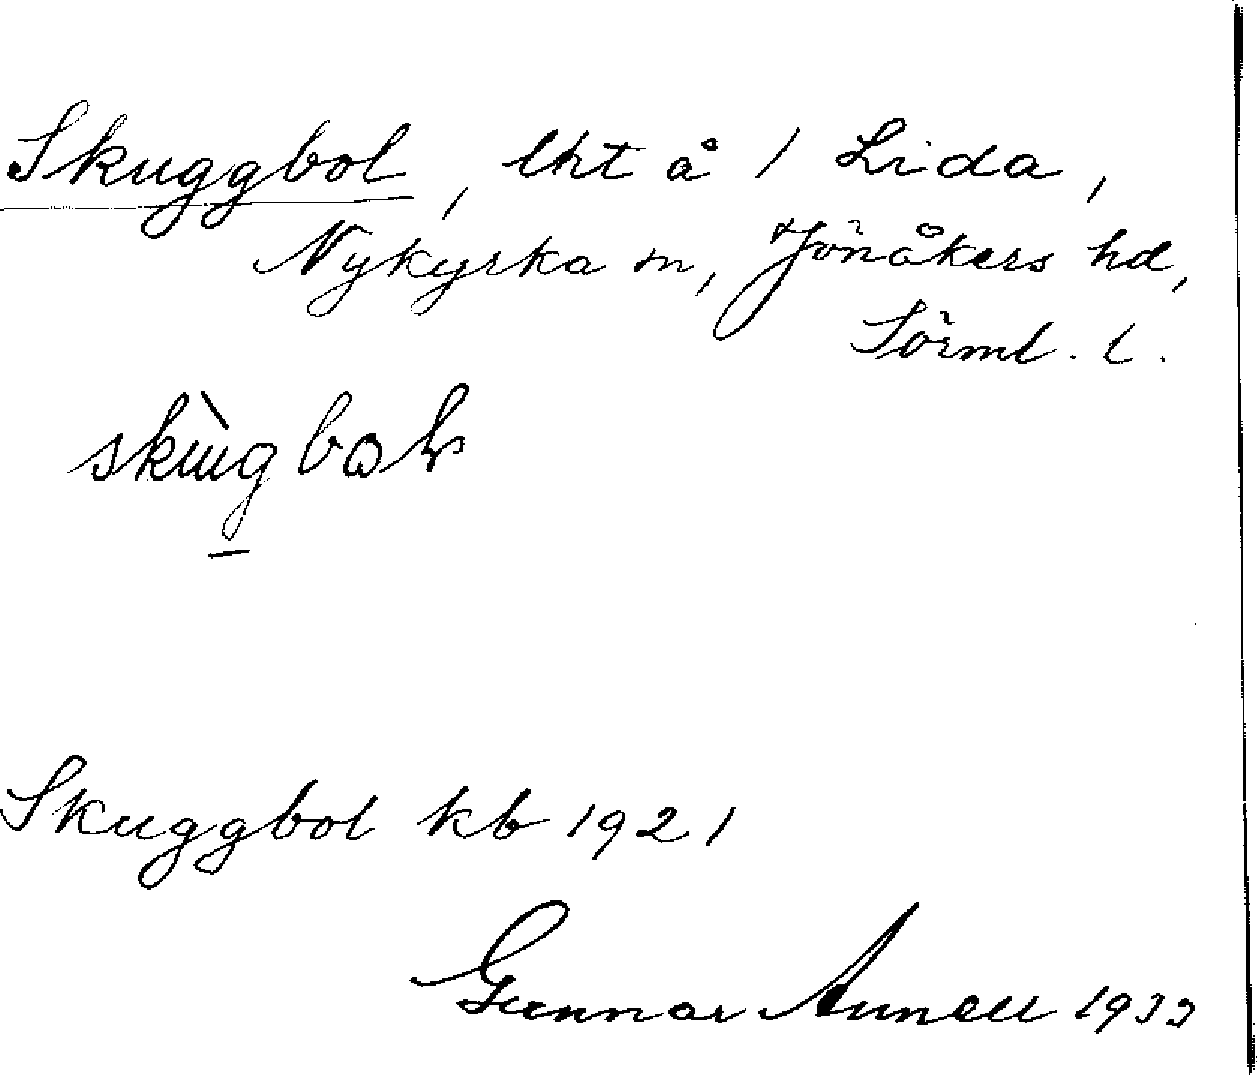 Skuggbol, lht å 1 Lida,
Nykyrka sn, Jönåkers hd,
Sörml. l.
Skuggbol kb 1921
Gunnar Annell 1933